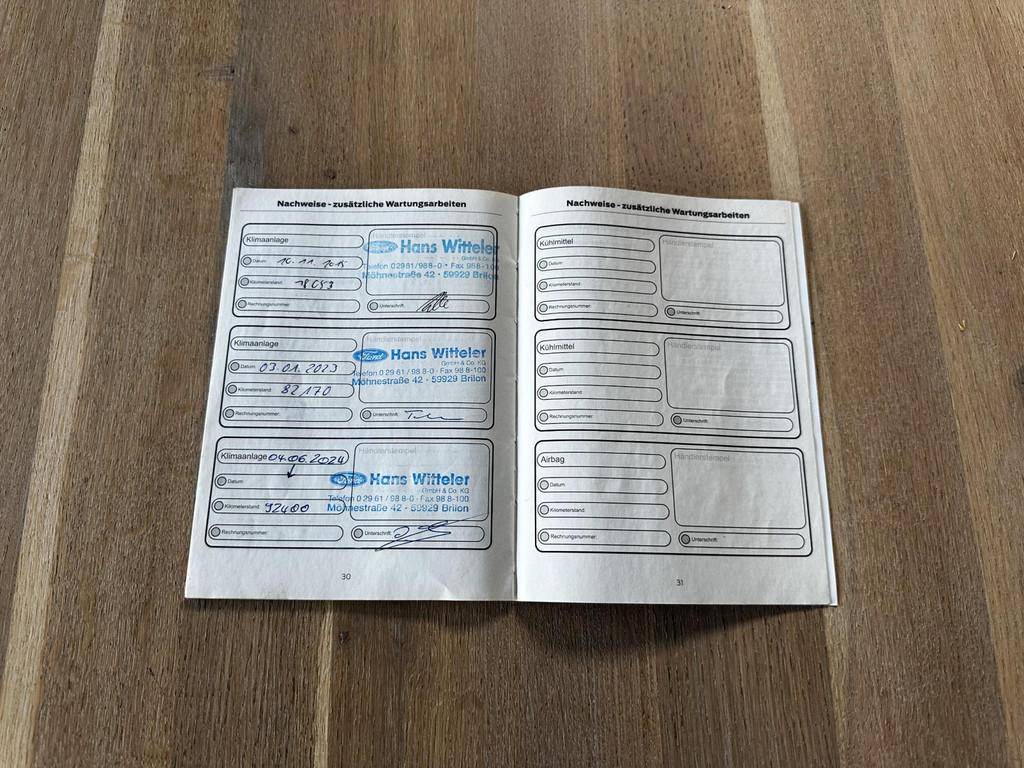 Nachweise - zusätzliche Wartungsarbeiten
Klimaanlage
Händlerstempel
Ford Hans Witteler
GmbH & Co. KG
Telefon 02961/988-0 · Fax 988-100
Möhnestraße 42 · 59929 Brilon
Datum:
Kilometerstand:
Rechnungsnummer:
Unterschrift:
Klimaanlage
Händlerstempel
Ford Hans Witteler
GmbH & Co. KG
Telefon 0 29 61 / 98 8-0 · Fax 98 8-100
Möhnestraße 42 · 59929 Brilon
Datum: 03.01.2023
Kilometerstand: 82170
Rechnungsnummer:
Unterschrift:
Klimaanlage 04.06.2024
Händlerstempel
Ford Hans Witteler
GmbH & Co. KG
Telefon 0 29 61 / 98 8-0 · Fax 98 8-100
Möhnestraße 42 · 59929 Brilon
Datum:
Kilometerstand: 92400
Rechnungsnummer:
Unterschrift:
30
Nachweise - zusätzliche Wartungsarbeiten
Kühlmittel
Händlerstempel
Datum:
Kilometerstand:
Rechnungsnummer:
Unterschrift:
Kühlmittel
Händlerstempel
Datum:
Kilometerstand:
Rechnungsnummer:
Unterschrift:
Airbag
Händlerstempel
Datum:
Kilometerstand:
Rechnungsnummer:
Unterschrift:
31